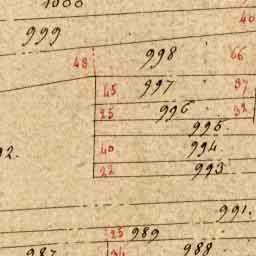 1000
40
999
48 998 66
45 997 37
25 996 32
995.
92.
40 994.
22 993
991.
25 989
987 24 988